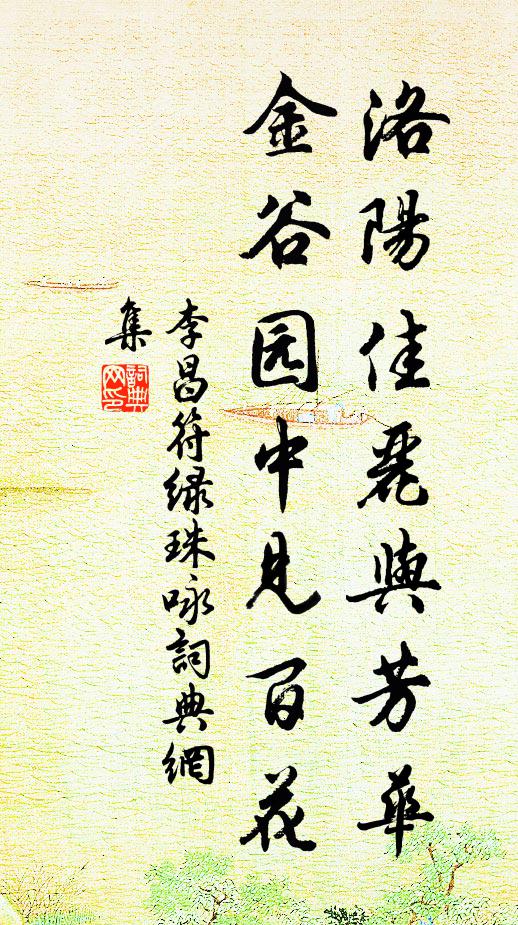 洛陽佳麗與芳華
金谷园中見百花
李昌符緑珠咏詞典網
集
詞典
网印